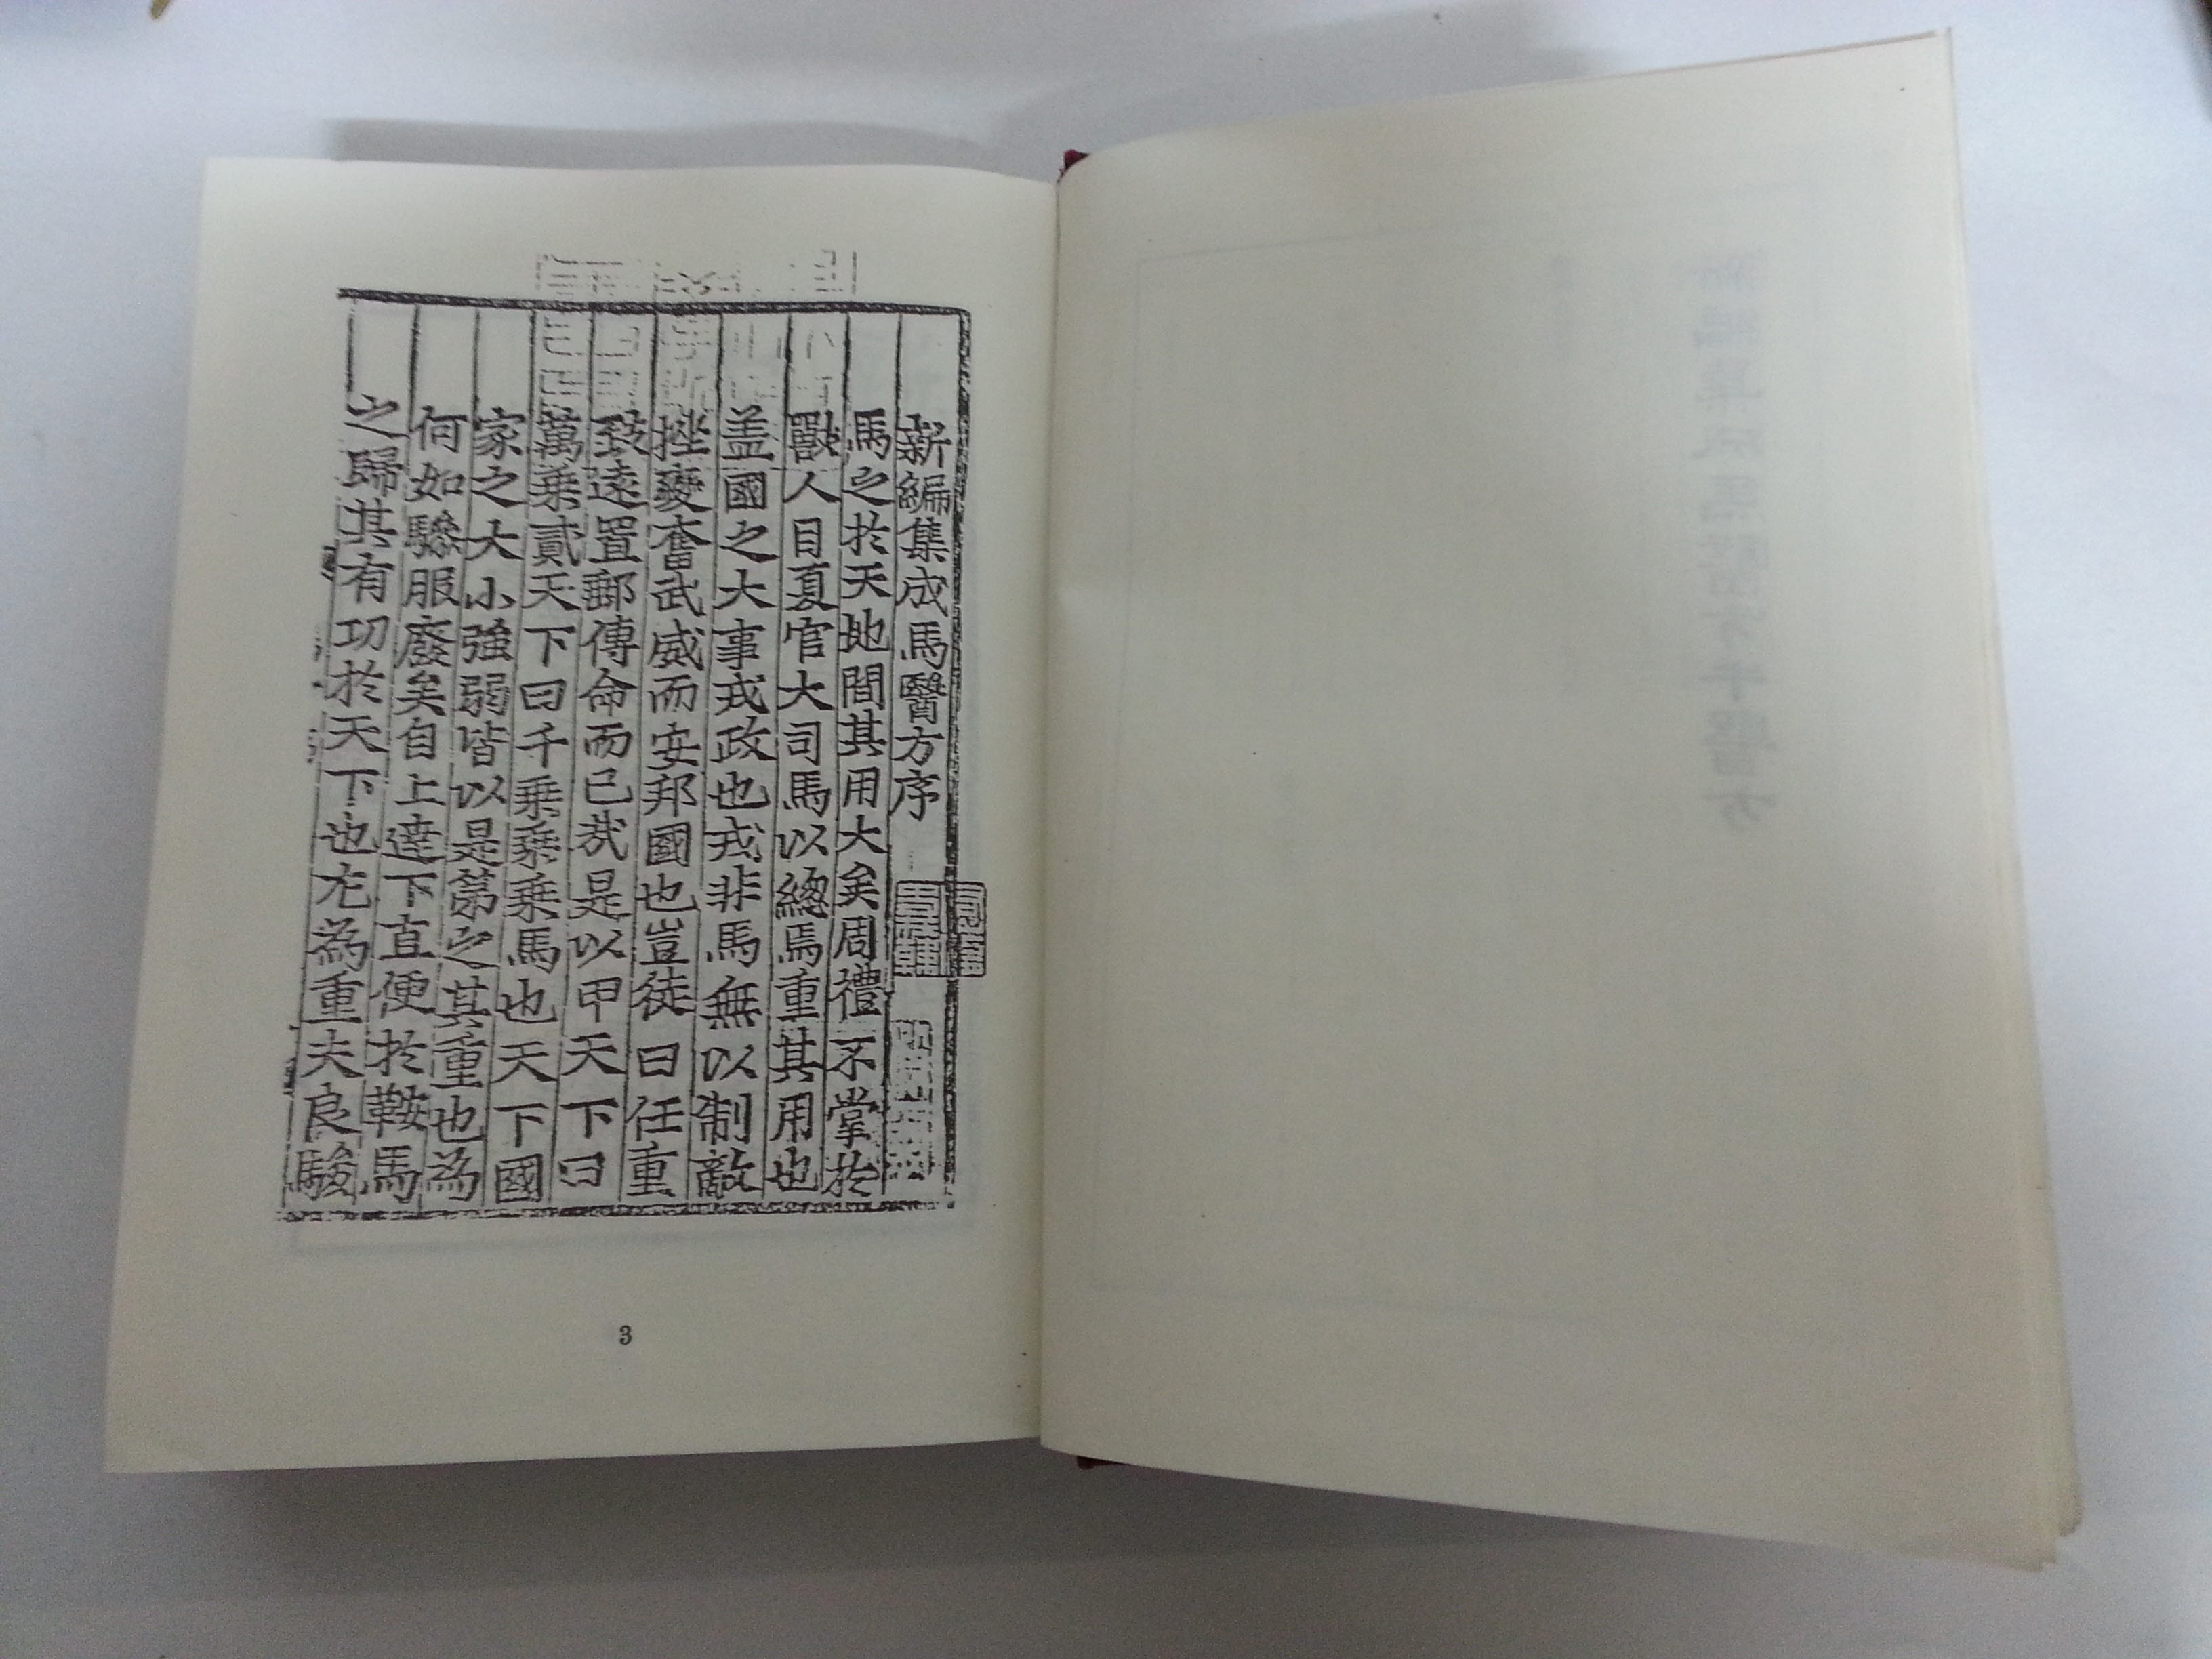 新編集成馬醫方序
馬之於天地間其用大矣周禮不掌於
獸人目夏官大司馬以總焉重其用也
盖國之大事戎政也戎非馬無以制敵
挫變奮武威而安邦國也豈徒曰任重
致遠置郵傳命而已㢤是以甲天下曰
萬乗貳天下曰千乗乗乗馬也天下國
家之大小強弱皆以是第之其重也為
何如驂服廢矣自上達下直便於鞍馬
之歸其有功於天下也尤為重夫良駿
3